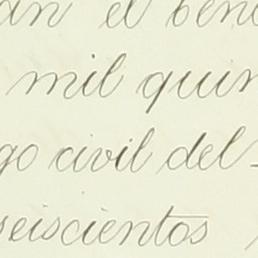 an el ben
mil quin
go civil del
seiscientos